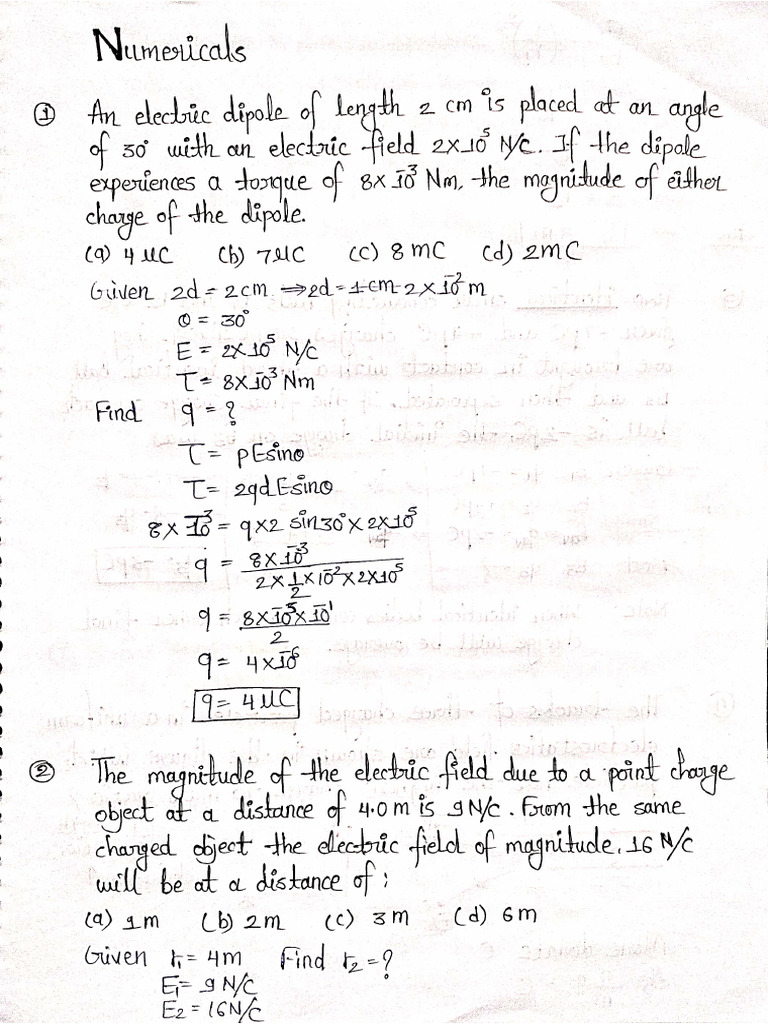 Numericals
① An electric dipole of length 2 cm is placed at an angle
of 30° with an electric field 2×10⁵ N/C. If the dipole
experiences a torque of 8×10⁻³ Nm, the magnitude of either
charge of the dipole.
(a) 4 μC (b) 7 μC (c) 8 mC (d) 2mC
Given 2d = 2cm ⇒ 2d = 1 cm 2×10⁻² m
θ = 30°
E = 2×10⁵ N/C
τ = 8×10⁻³ Nm
Find q = ?
τ = pEsinθ
τ = 2qdEsinθ
8×10⁻³ = q×2 sin30° × 2×10⁵
q = 8×10⁻³ / 2×1/2×10⁻²×2×10⁵
q = 8×10⁻⁵×10⁻¹ / 2
q = 4×10⁻⁶
q = 4 μC
② The magnitude of the electric field due to a point charge
object at a distance of 4.0 m is 9 N/C. From the same
charged object the electric field of magnitude, 16 N/C
will be at a distance of :
(a) 1m (b) 2m (c) 3m (d) 6m
Given r₁ = 4m Find r₂ = ?
E₁ = 9 N/C
E₂ = 16 N/C